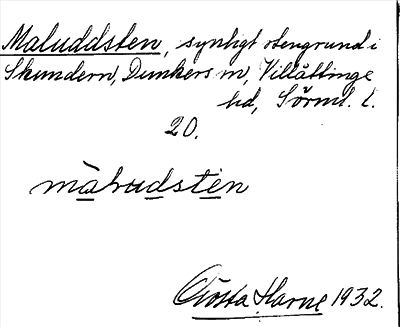 Maluddsten, synligt stengrund i
Skundern, Dunkers sn, Villåttinge
hd, Sörml. l.
20.
màludstèn
Gösta Harne 1932.